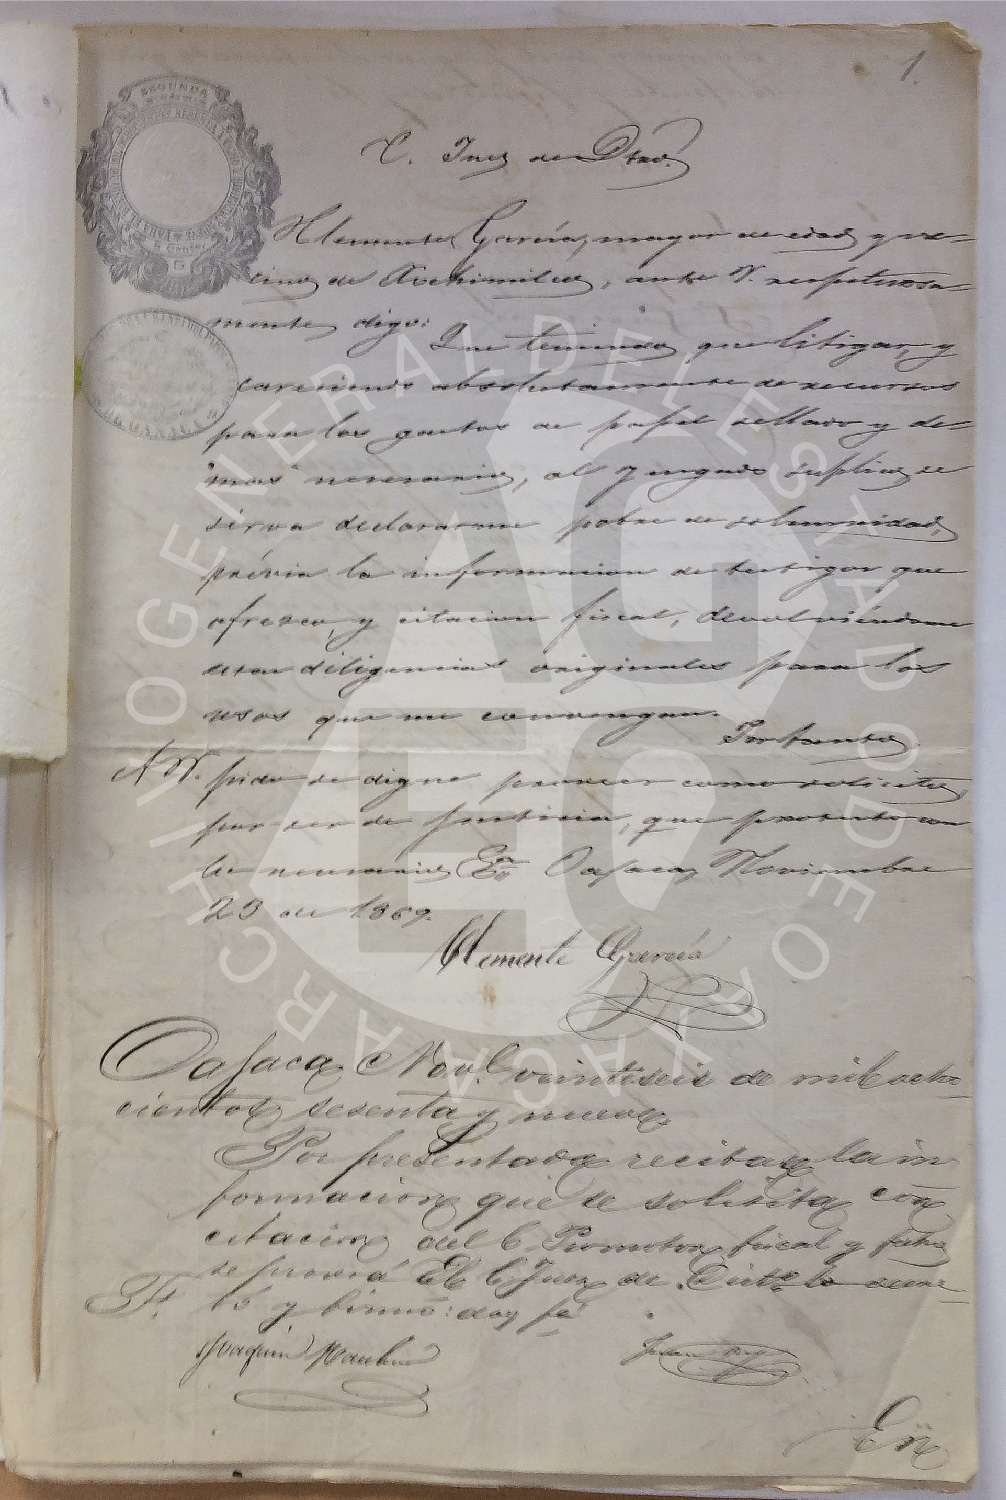 1.
C. Juez de Dtrō.
Clemente García, mayor de edad y ve-
cino de Xochimilco, ante V. respetuosa-
mente digo:
Que teniendo que litigar, y
careciendo absolutamente de recursos
para los gastos de papel sellado y de-
mas necesario, al Juzgado suplico se
sirva declararme pobre de solemnidad,
prévia la informacion de testigos que
ofrezco, y citacion fiscal, devolviéndome
estas diligencias originales para los
usos que me convengan.
Por tanto
A V. pido se digne proveer como solicito
por ser de justicia, que protesto con
lo necesario Oajaca, Noviembre
23 de 1869.
Clemente García
Oajaca Nov.e veintiseis de mil ocho-
cientos sesenta y nueve
Por presentada recibase la in
formacion que se solicita con
citacion del C. Promotor fiscal y fecho
se proverá El C. Juez de Distº lo decre-
tó y firmó: doy fé
Joaquin
Juan Rey
En
SEGUNDA
ARCHIVO GENERAL DEL ESTADO DE OAXACA
AGEO